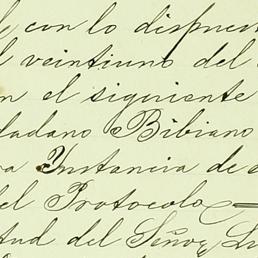 con lo dispues
veintiuno del
n el siguiente
dadano Bibiano
a Instancia de
el Protocolo
tud del Señor Lu